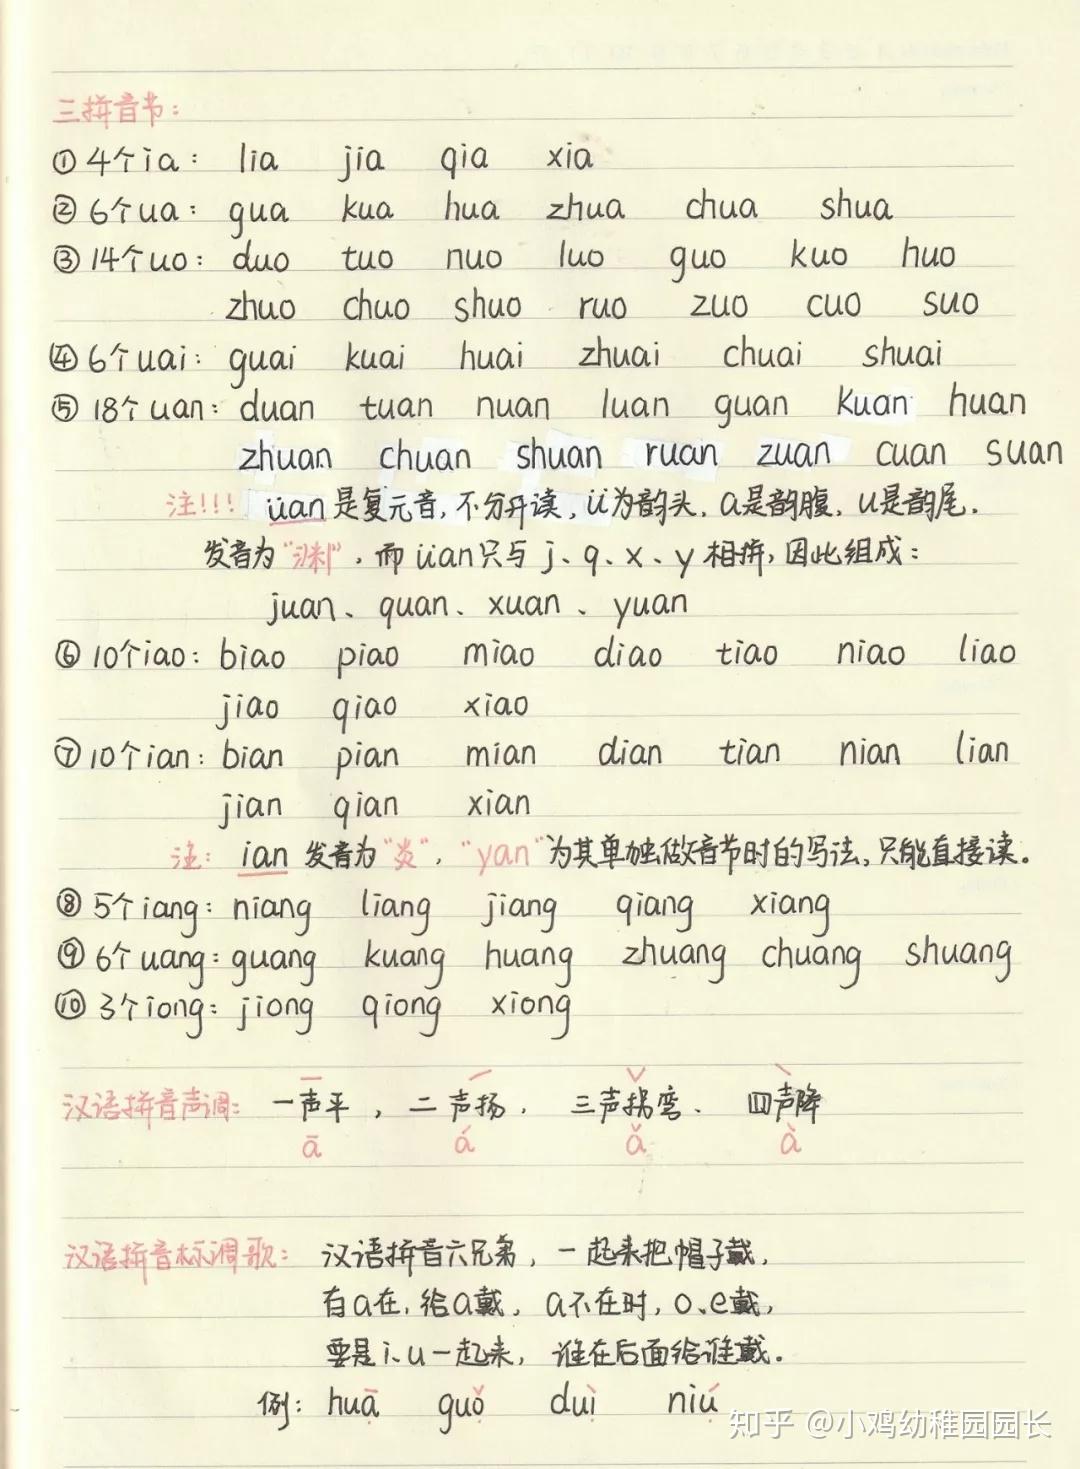 三拼音节:
① 4个ia: lia jia qia xia
② 6个ua: gua kua hua zhua chua shua
③ 14个uo: duo tuo nuo luo guo kuo huo
zhuo chuo shuo ruo zuo cuo suo
④ 6个uai: guai kuai huai zhuai chuai shuai
⑤ 18个uan: duan tuan nuan luan guan kuan huan
zhuan chuan shuan ruan zuan cuan suan
注!!! üan是复元音,不分开读,ü为韵头,a是韵腹,u是韵尾.
发音为"渊",而üan只与j、q、x、y相拼,因此组成:
juan、quan、xuan、yuan
⑥ 10个iao: biao piao miao diao tiao niao liao
jiao qiao xiao
⑦ 10个ian: bian pian mian dian tian nian lian
jian qian xian
注: ian 发音为"炎","yan"为其单独做音节时的写法,只能直接读。
⑧ 5个iang: niang liang jiang qiang xiang
⑨ 6个uang: guang kuang huang zhuang chuang shuang
⑩ 3个iong: jiong qiong xiong
汉语拼音声调: 一声平,二声扬,三声拐弯、四声降
ā á ǎ à
汉语拼音标调歌: 汉语拼音六兄弟,一起来把帽子戴,
有a在,给a戴,a不在时,o、e戴,
要是i、u一起来,谁在后面给谁戴。
例: huā guǒ duì niú
知乎 @小鸡幼稚园园长